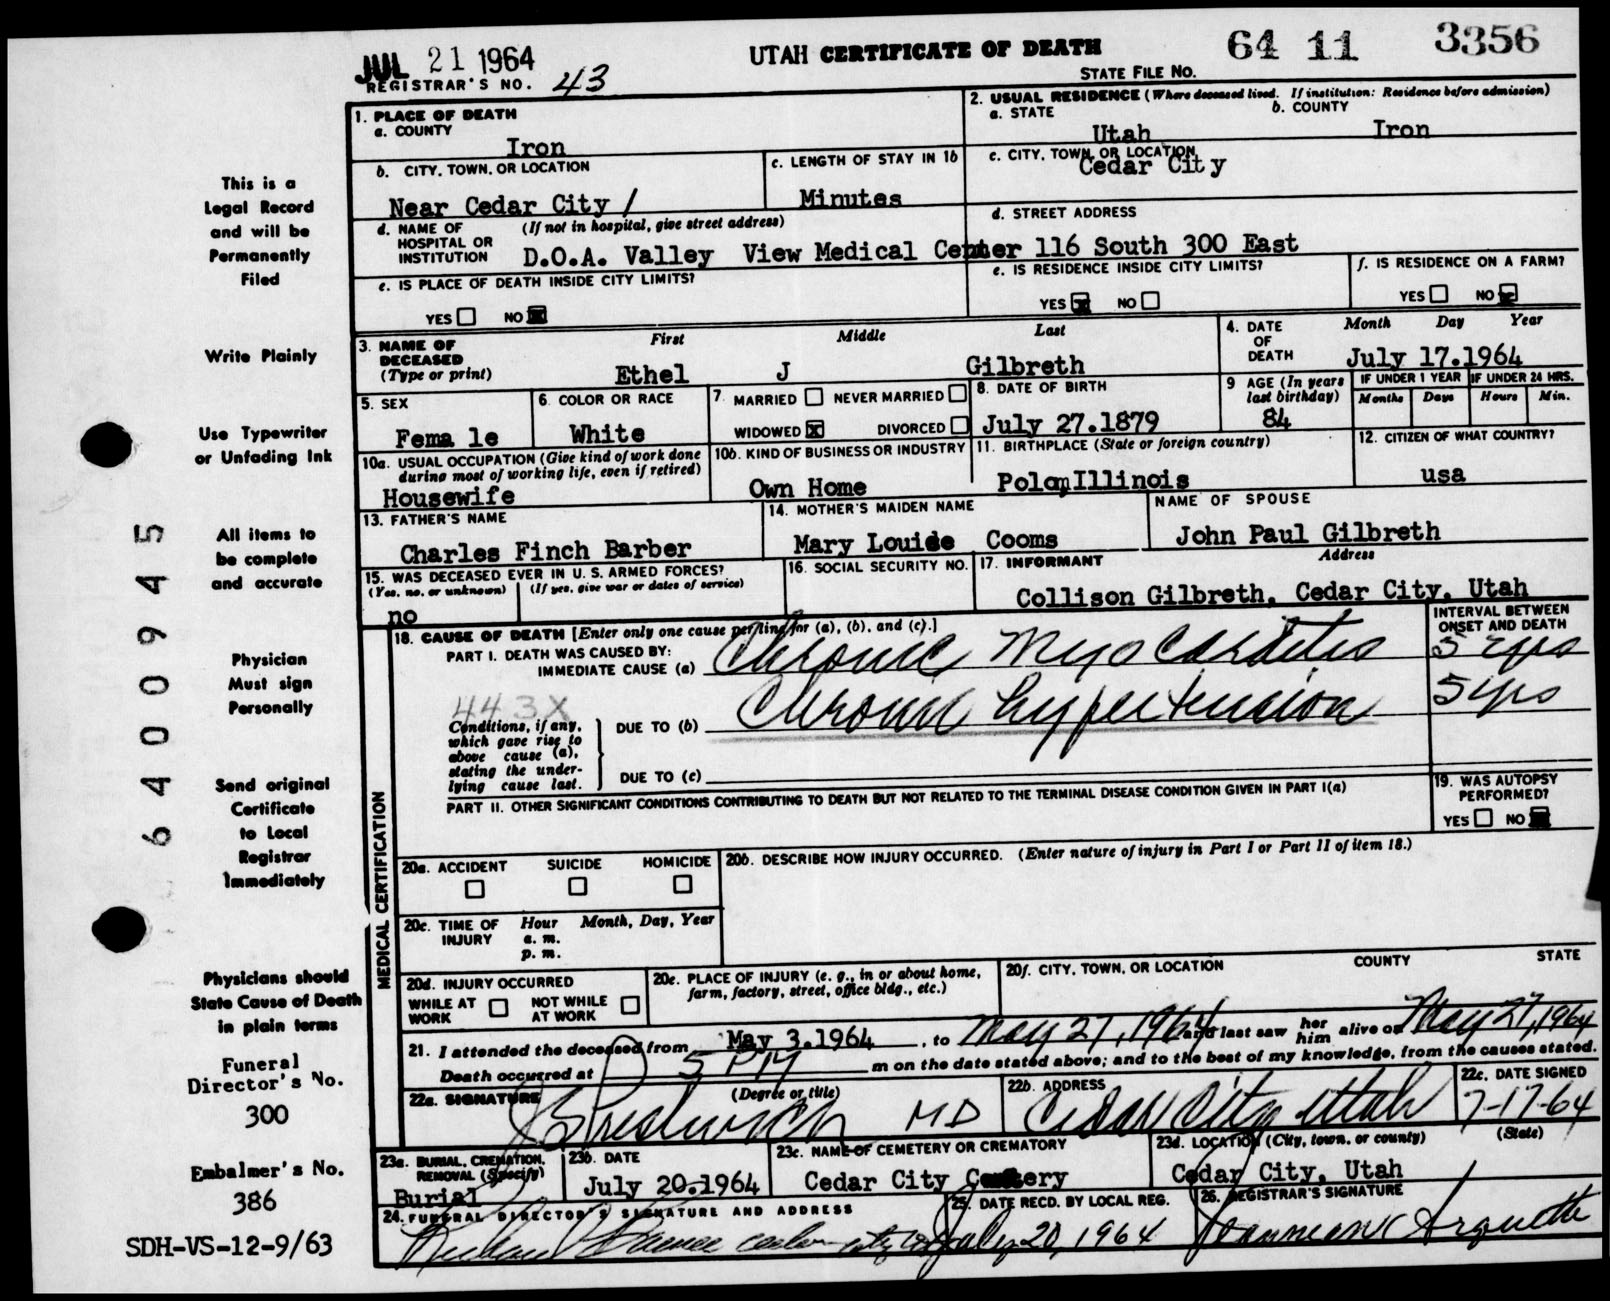 JUL 21 1964
REGISTRAR'S NO. 43
UTAH CERTIFICATE OF DEATH
STATE FILE NO. 64 11 3356
1. PLACE OF DEATH
a. COUNTY
Iron
2. USUAL RESIDENCE (Where deceased lived. If institution: Residence before admission)
a. STATE b. COUNTY
Utah Iron
b. CITY, TOWN, OR LOCATION
Near Cedar City /
c. LENGTH OF STAY IN 1b
Minutes
c. CITY, TOWN, OR LOCATION
Cedar City
d. NAME OF HOSPITAL OR INSTITUTION (If not in hospital, give street address)
D.O.A. Valley View Medical Center
d. STREET ADDRESS
116 South 300 East
e. IS PLACE OF DEATH INSIDE CITY LIMITS?
YES NO X
e. IS RESIDENCE INSIDE CITY LIMITS?
YES X NO
f. IS RESIDENCE ON A FARM?
YES NO X
3. NAME OF DECEASED (Type or print)
First Middle Last
Ethel J Gilbreth
4. DATE OF DEATH
Month Day Year
July 17.1964
5. SEX
Fema le
6. COLOR OR RACE
White
7. MARRIED NEVER MARRIED
WIDOWED X DIVORCED
8. DATE OF BIRTH
July 27.1879
9 AGE (In years last birthday)
84
IF UNDER 1 YEAR IF UNDER 24 HRS.
Months Days Hours Min.
10a. USUAL OCCUPATION (Give kind of work done during most of working life, even if retired)
Housewife
10b. KIND OF BUSINESS OR INDUSTRY
Own Home
11. BIRTHPLACE (State or foreign country)
Polo, Illinois
12. CITIZEN OF WHAT COUNTRY?
usa
13. FATHER'S NAME
Charles Finch Barber
14. MOTHER'S MAIDEN NAME
Mary Louise Cooms
NAME OF SPOUSE
John Paul Gilbreth
15. WAS DECEASED EVER IN U. S. ARMED FORCES?
(Yes, no, or unknown) (If yes, give war or dates of service)
no
16. SOCIAL SECURITY NO.
17. INFORMANT Address
Collison Gilbreth, Cedar City, Utah
MEDICAL CERTIFICATION
18. CAUSE OF DEATH [Enter only one cause per line for (a), (b), and (c).]
INTERVAL BETWEEN ONSET AND DEATH
PART I. DEATH WAS CAUSED BY:
IMMEDIATE CAUSE (a) Chronic Myocarditis 5 yrs
443X
Conditions, if any, which gave rise to above cause (a), stating the underlying cause last.
DUE TO (b) Chronic hypertension 5 yrs
DUE TO (c)
PART II. OTHER SIGNIFICANT CONDITIONS CONTRIBUTING TO DEATH BUT NOT RELATED TO THE TERMINAL DISEASE CONDITION GIVEN IN PART I(a)
19. WAS AUTOPSY PERFORMED?
YES NO
20a. ACCIDENT SUICIDE HOMICIDE
20b. DESCRIBE HOW INJURY OCCURRED. (Enter nature of injury in Part I or Part II of item 18.)
20c. TIME OF INJURY Hour Month, Day, Year
a. m.
p. m.
20d. INJURY OCCURRED
WHILE AT WORK NOT WHILE AT WORK
20e. PLACE OF INJURY (e. g., in or about home, farm, factory, street, office bldg., etc.)
20f. CITY, TOWN, OR LOCATION COUNTY STATE
21. I attended the deceased from May 3.1964, to May 27, 1964 and last saw her him alive on May 27, 1964
Death occurred at 5 PM m on the date stated above; and to the best of my knowledge, from the causes stated.
22a. SIGNATURE (Degree or title)
MD
22b. ADDRESS
Cedar City Utah
22c. DATE SIGNED
7-17-64
23a. BURIAL, CREMATION, REMOVAL (Specify)
Burial
23b. DATE
July 20.1964
23c. NAME OF CEMETERY OR CREMATORY
Cedar City Cemetery
23d. LOCATION (City, town, or county) (State)
Cedar City, Utah
24. FUNERAL DIRECTOR'S SIGNATURE AND ADDRESS
25. DATE RECD. BY LOCAL REG.
July 20, 1964
26. REGISTRAR'S SIGNATURE
This is a
Legal Record
and will be
Permanently
Filed
Write Plainly
Use Typewriter
or Unfading Ink
All items to
be complete
and accurate
Physician
Must sign
Personally
Send original
Certificate
to Local
Registrar
Immediately
Physicians should
State Cause of Death
in plain terms
Funeral
Director's No.
300
Embalmer's No.
386
SDH-VS-12-9/63
6400945